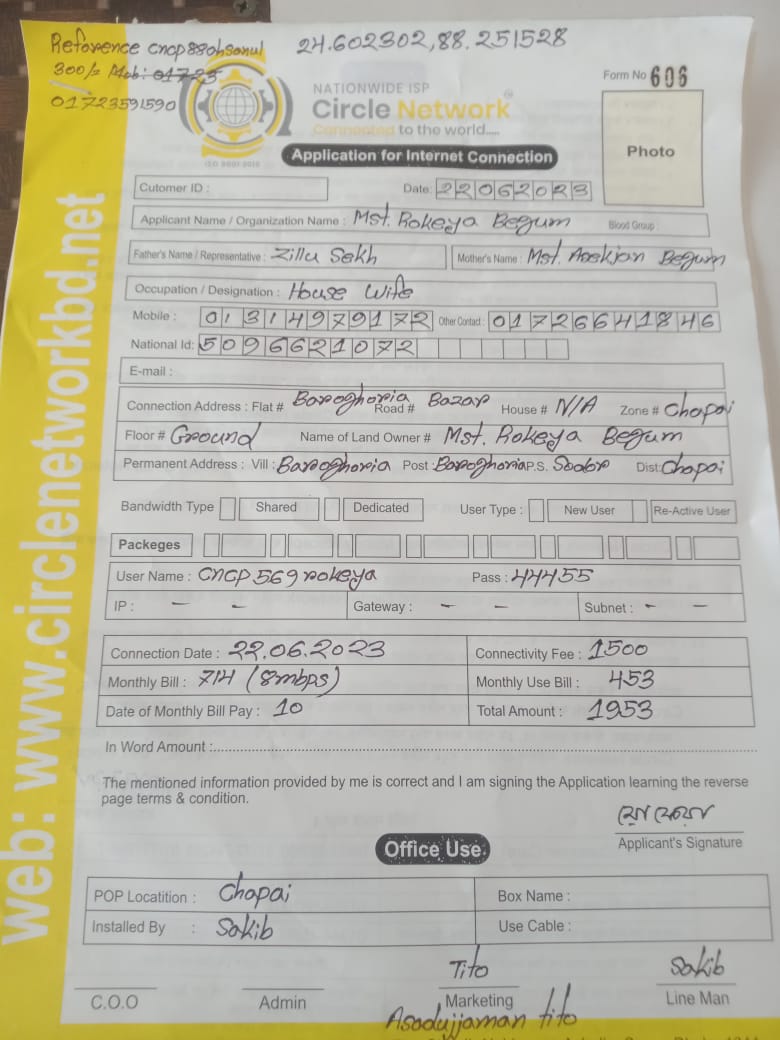 Reference cncp880hsanul 24.602302,88.251528
300/= Mob: 01723
01723591590
NATIONWIDE ISP
Circle Network
Connected to the world.....
ISO 9001:2015
Form No 606
Photo
Application for Internet Connection
Cutomer ID : Date: 22062023
Applicant Name / Organization Name : Mst. Rokeya Begum Blood Group :
Father's Name / Representative : Zillu Sekh Mother's Name : Mst. Begum
Occupation / Designation : House Wife
Mobile : 01314979172 Other Contact : 01726641846
National Id: 5096621072
E-mail :
Connection Address : Flat # Baroghoria Road # Bazar House # N/A Zone # Chapai
Floor # Ground Name of Land Owner # Mst. Rokeya Begum
Permanent Address : Vill : Baroghoria Post : Baroghoria P.S. Sador Dist: Chapai
Bandwidth Type Shared Dedicated User Type : New User Re-Active User
Packeges
User Name : CNCP569rokeya Pass : 44455
IP : - - Gateway : - - Subnet : - -
Connection Date : 22.06.2023 Connectivity Fee : 1500
Monthly Bill : 714 (8mbps) Monthly Use Bill : 453
Date of Monthly Bill Pay : 10 Total Amount : 1953
In Word Amount :
The mentioned information provided by me is correct and I am signing the Application learning the reverse
page terms & condition.
Applicant's Signature
Office Use
POP Locatition : Chapai Box Name :
Installed By : Sakib Use Cable :
Tito Sakib
C.O.O Admin Marketing Line Man
Asadujjaman tito
web: www.circlenetworkbd.net